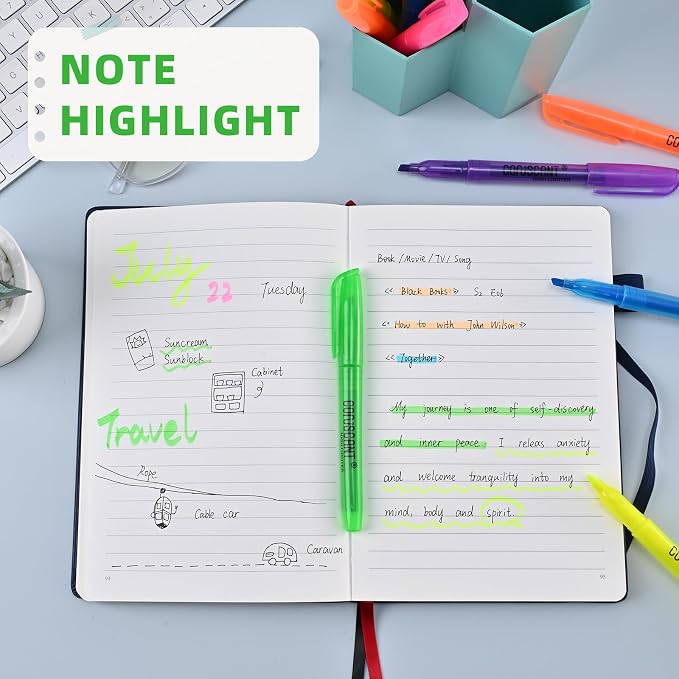 NOTE
HIGHLIGHT
July
22
Tuesday
Suncream
Sunblock
Cabinet
Travel
Rope
Cable car
Caravan
94
Book / Movie / TV / Song
<< Black Books >> S2 E06
<< How to with John Wilson >>
<< Together >>
My journey is one of self-discovery
and inner peace. I releas anxiety
and welcome tranquility into my
mind, body and spirit.
95
CORUSCANT
CORUSCANT
HIGHLIGHTER